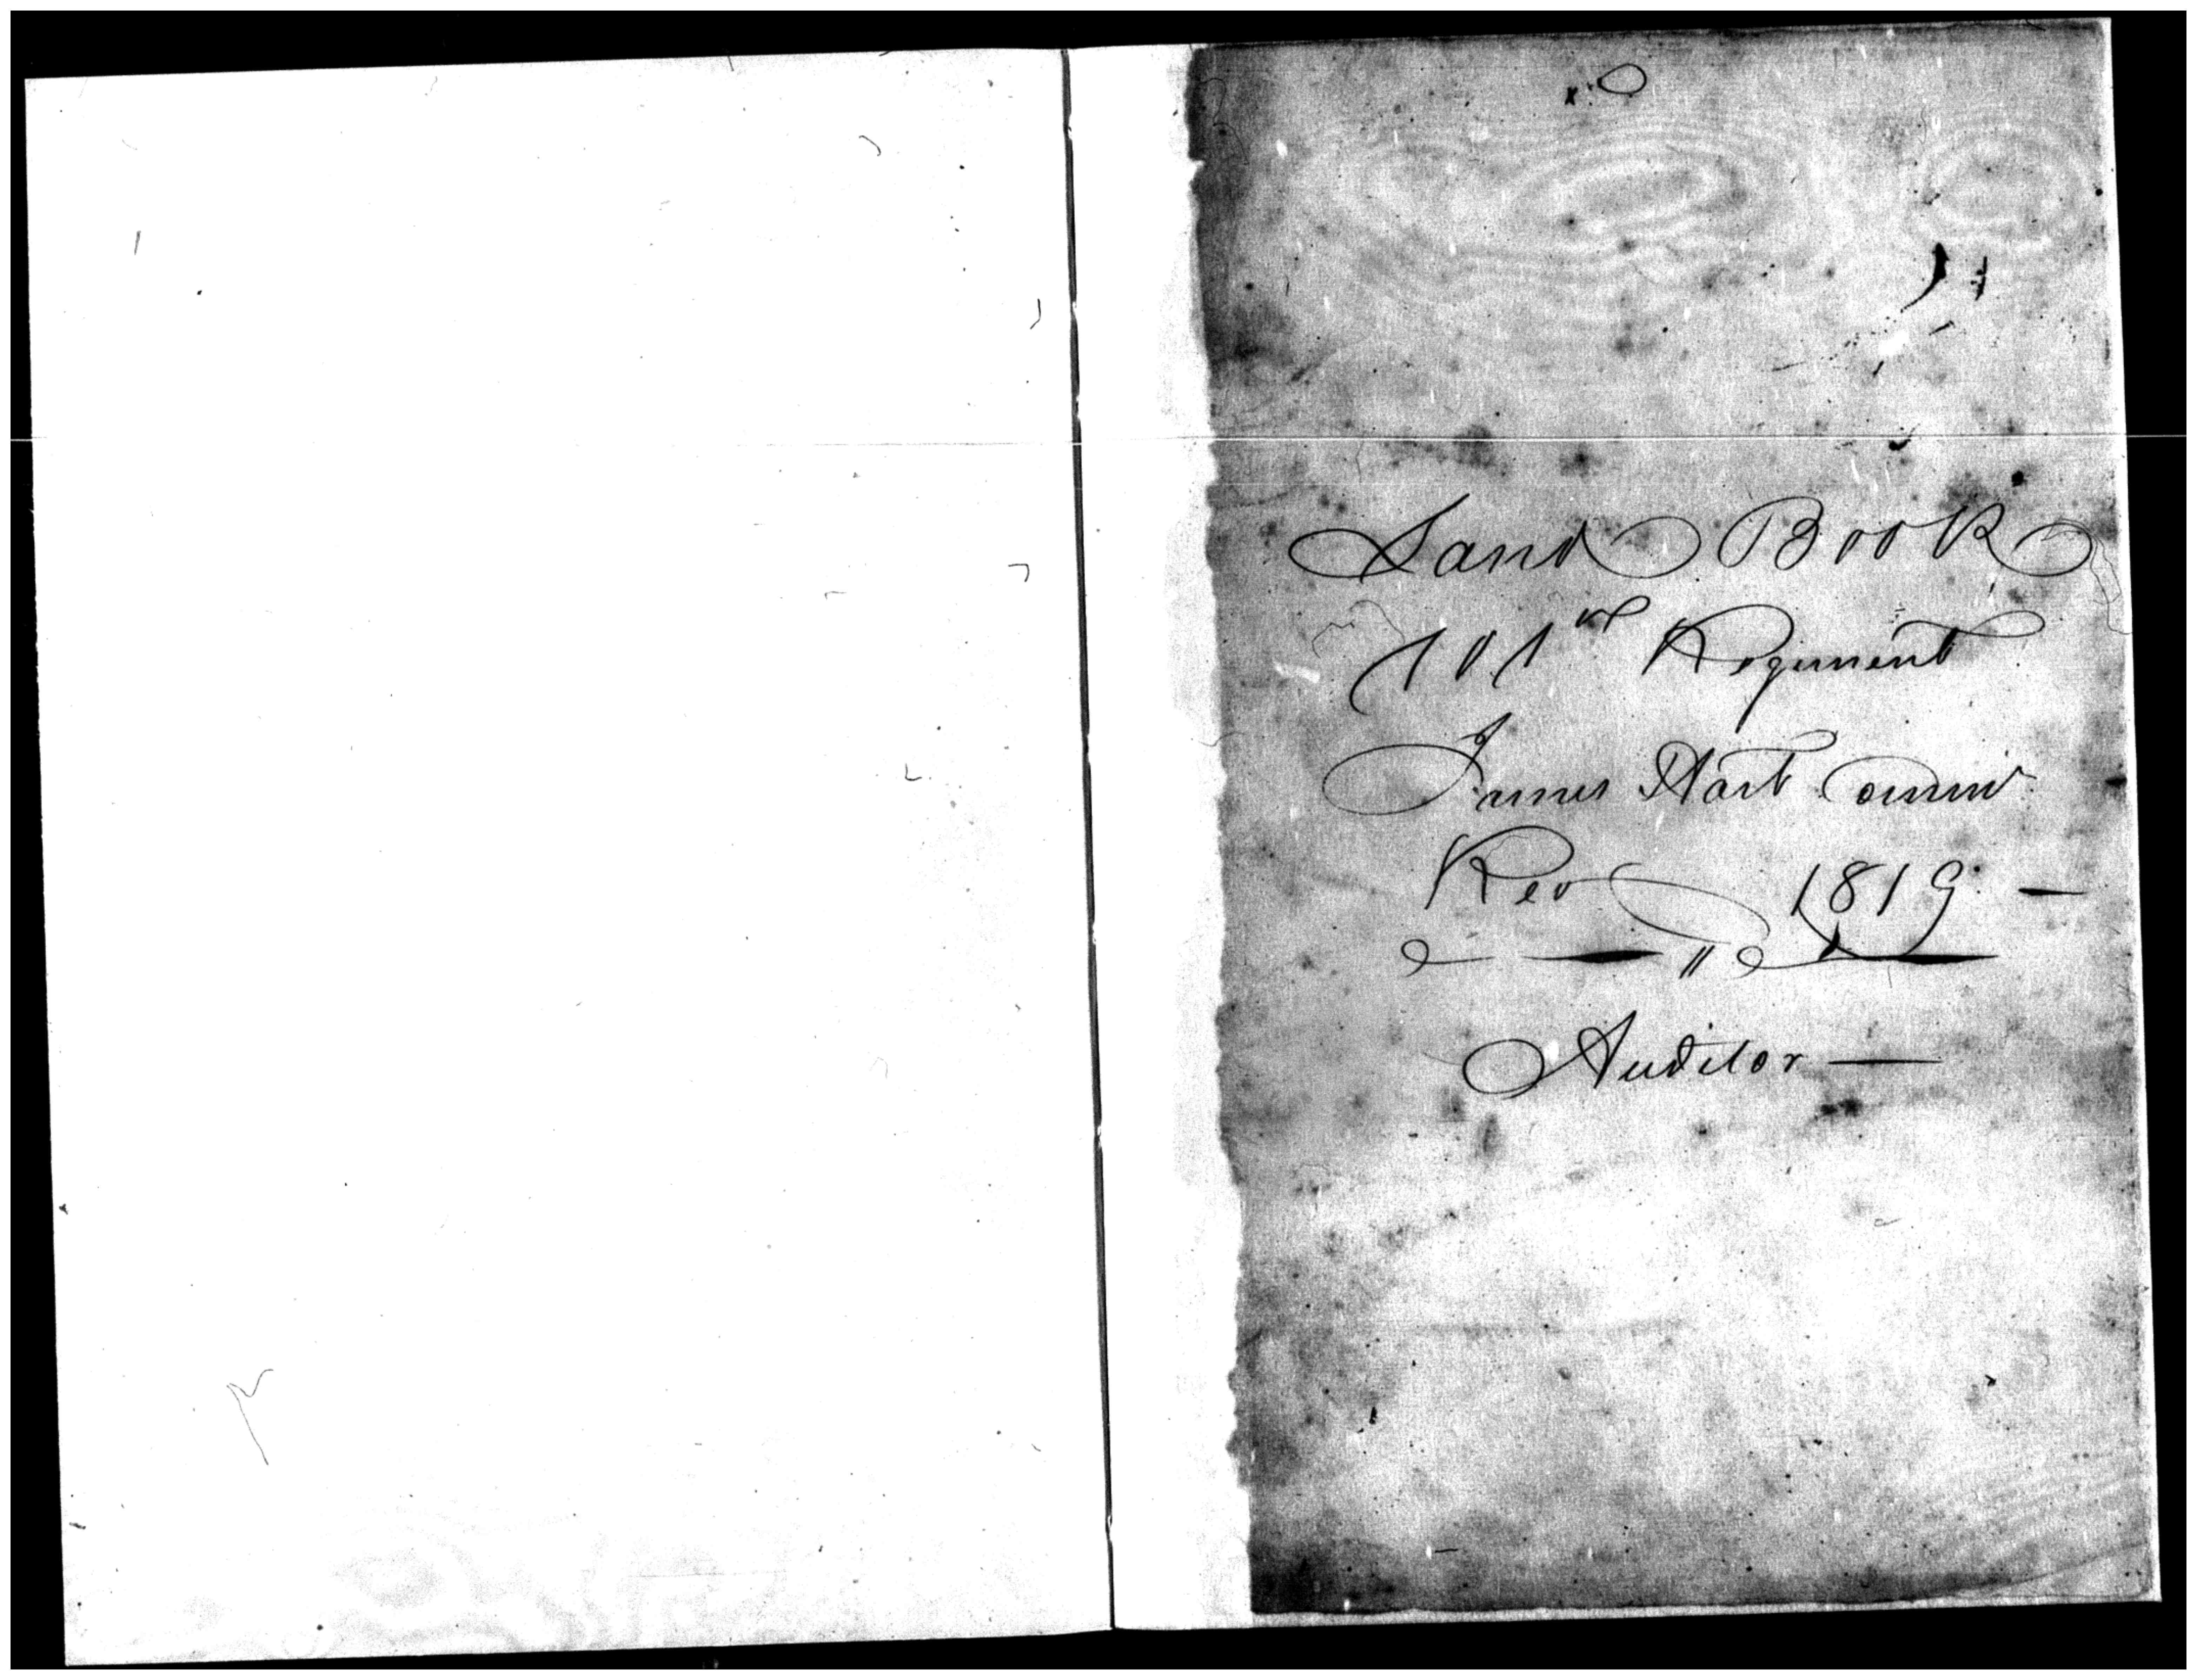 Land Book
101st Regiment
James Hart Commr
Rev 1819 —
Auditor —